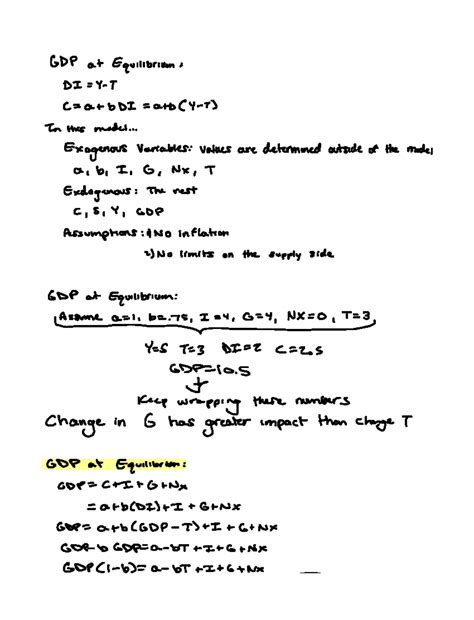 GDP at Equilibrium:
DI = Y-T
C = a + b DI = a+b(Y-T)
In this model...
Exogenous Variables: values are determined outside of the model
a, b, I, G, Nx, T
Endogenous: The rest
C, S, Y, GDP
Assumptions: 1) No inflation
2) No limits on the supply side
GDP at Equilibrium:
Assume a=1, b=.75, I=4, G=4, NX=0, T=3
Y=5 T=3 DI=2 C=2.5
GDP=10.5
Keep wrapping these numbers
Change in G has greater impact than change T
GDP at Equilibrium:
GDP = C+I+G+Nx
= a+b(DI)+I+G+Nx
GDP = a+b(GDP-T)+I+G+Nx
GDP-b GDP=a-bT+I+G+Nx
GDP(1-b)= a-bT+I+G+Nx